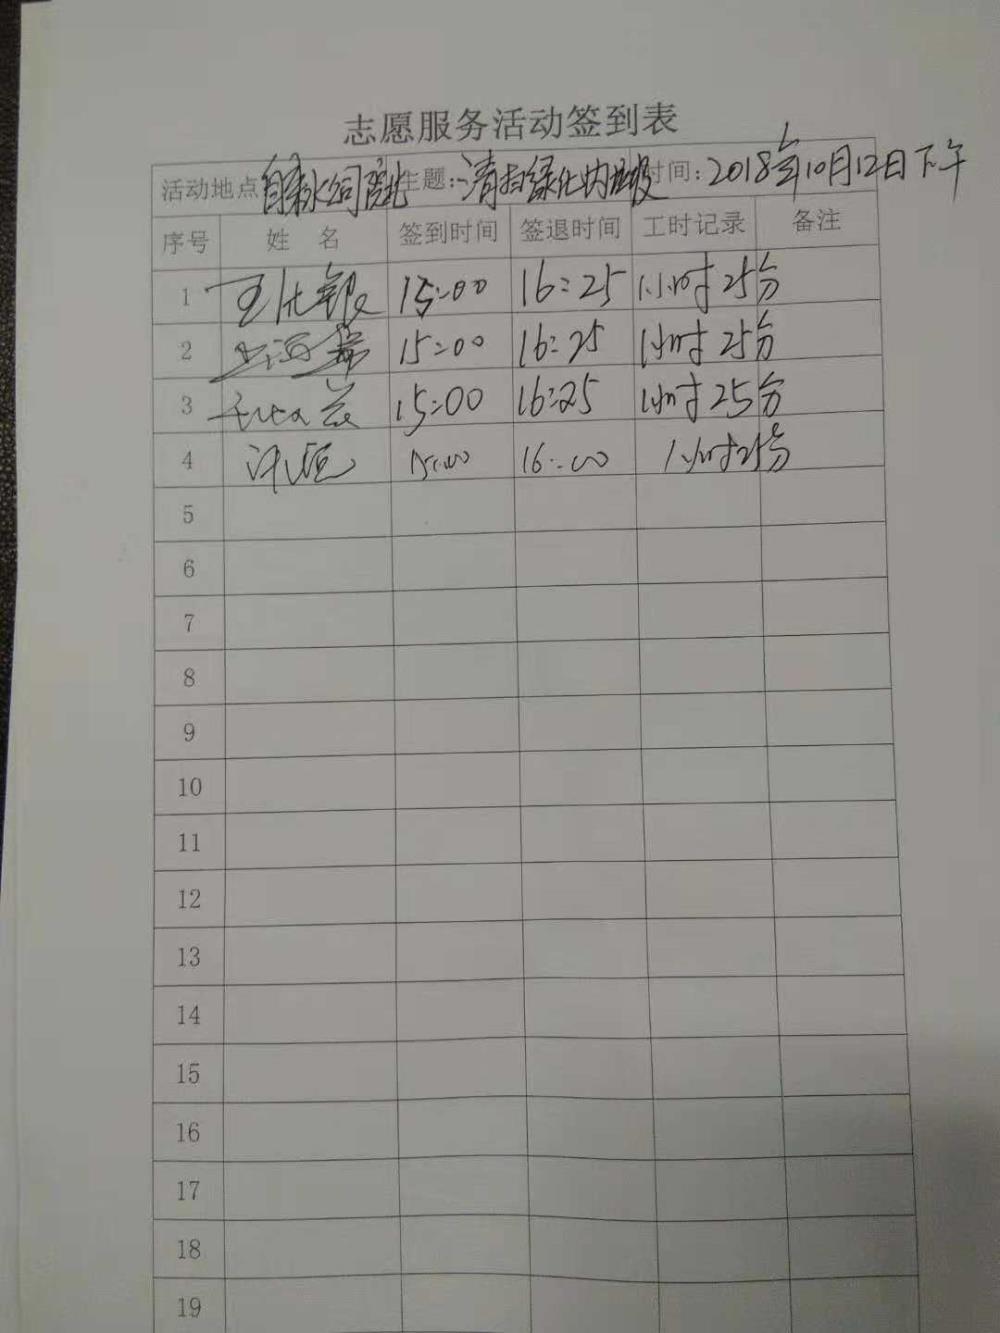 志愿服务活动签到表
活动地点 自来水公司 主题: 清扫绿化内垃圾 时间: 2018年10月12日下午
序号 姓 名 签到时间 签退时间 工时记录 备注
1 15:00 16:25 1小时25分
2 15:00 16:25 1小时25分
3 15:00 16:25 1小时25分
4 15:00 16:00 1小时25分
5
6
7
8
9
10
11
12
13
14
15
16
17
18
19